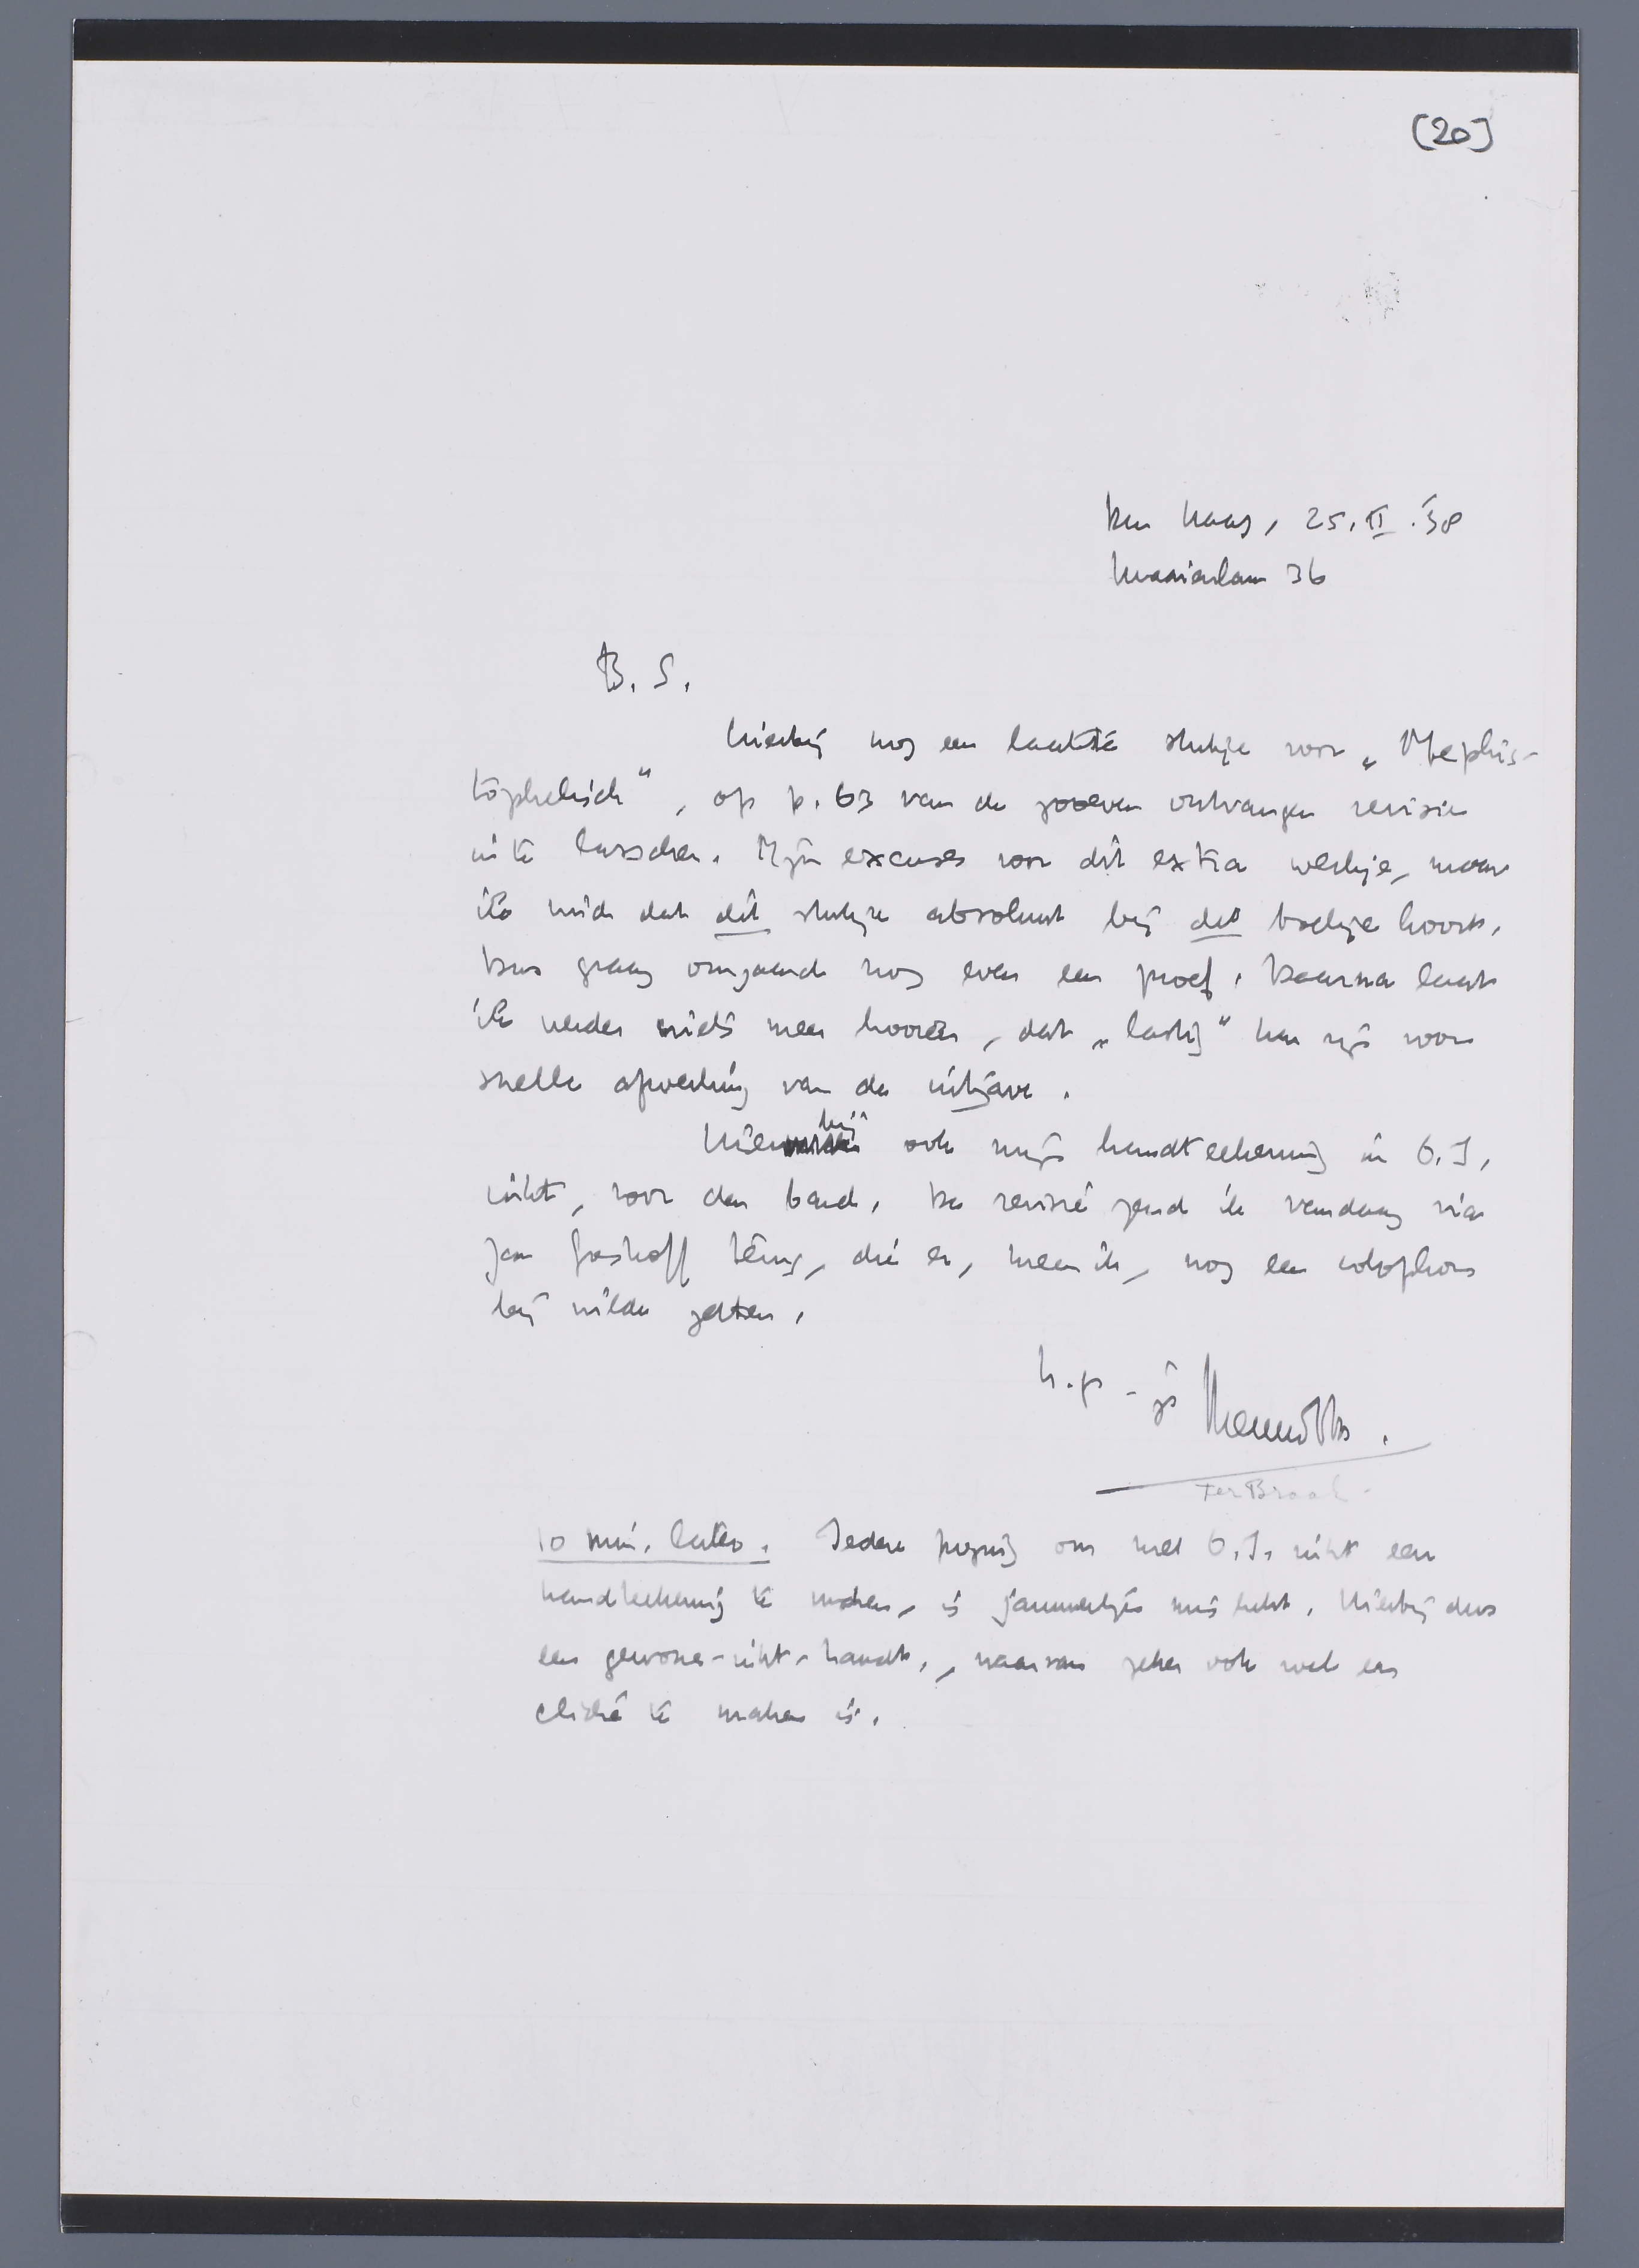 (20)
Den Haag, 25.II.'38
Kraaienlaan 36
B. S.
Hierbij nog een laatste stukje voor „Mephis-
tophelisch", op p. 63 van de zooeven ontvangen revisie
in te lasschen. Mijn excuses voor dit extra werkje, maar
ik vind dat dit stukje absoluut bij dit boekje hoort.
Dus graag omgaande nog even een proef. Daarna laat
ik verder niets meer hooren, dat „lastig" kan zijn voor
snelle afwerking van de uitgave.
Hierbij ook mijn handteekening in O.I.
inkt, voor den band. De revisie zend ik vandaag via
Jan Greshoff terug, die er, meen ik, nog een colophon
bij wilde zetten.
h.gr. - je Menno ttr.
Ter Braak
10 min. later. Iedere poging om met O.I. inkt een
handteekening te maken, is jammerlijk mislukt. Hierbij dus
een gewone-inkt-handt., waarvan zeker ook wel een
cliché te maken is.